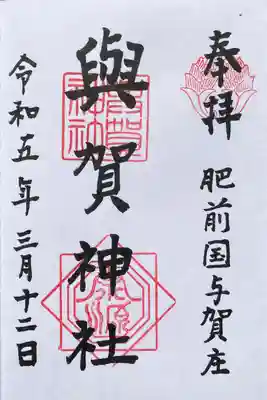 奉拝
肥前国与賀庄
與賀神社
令和五年三月十二日